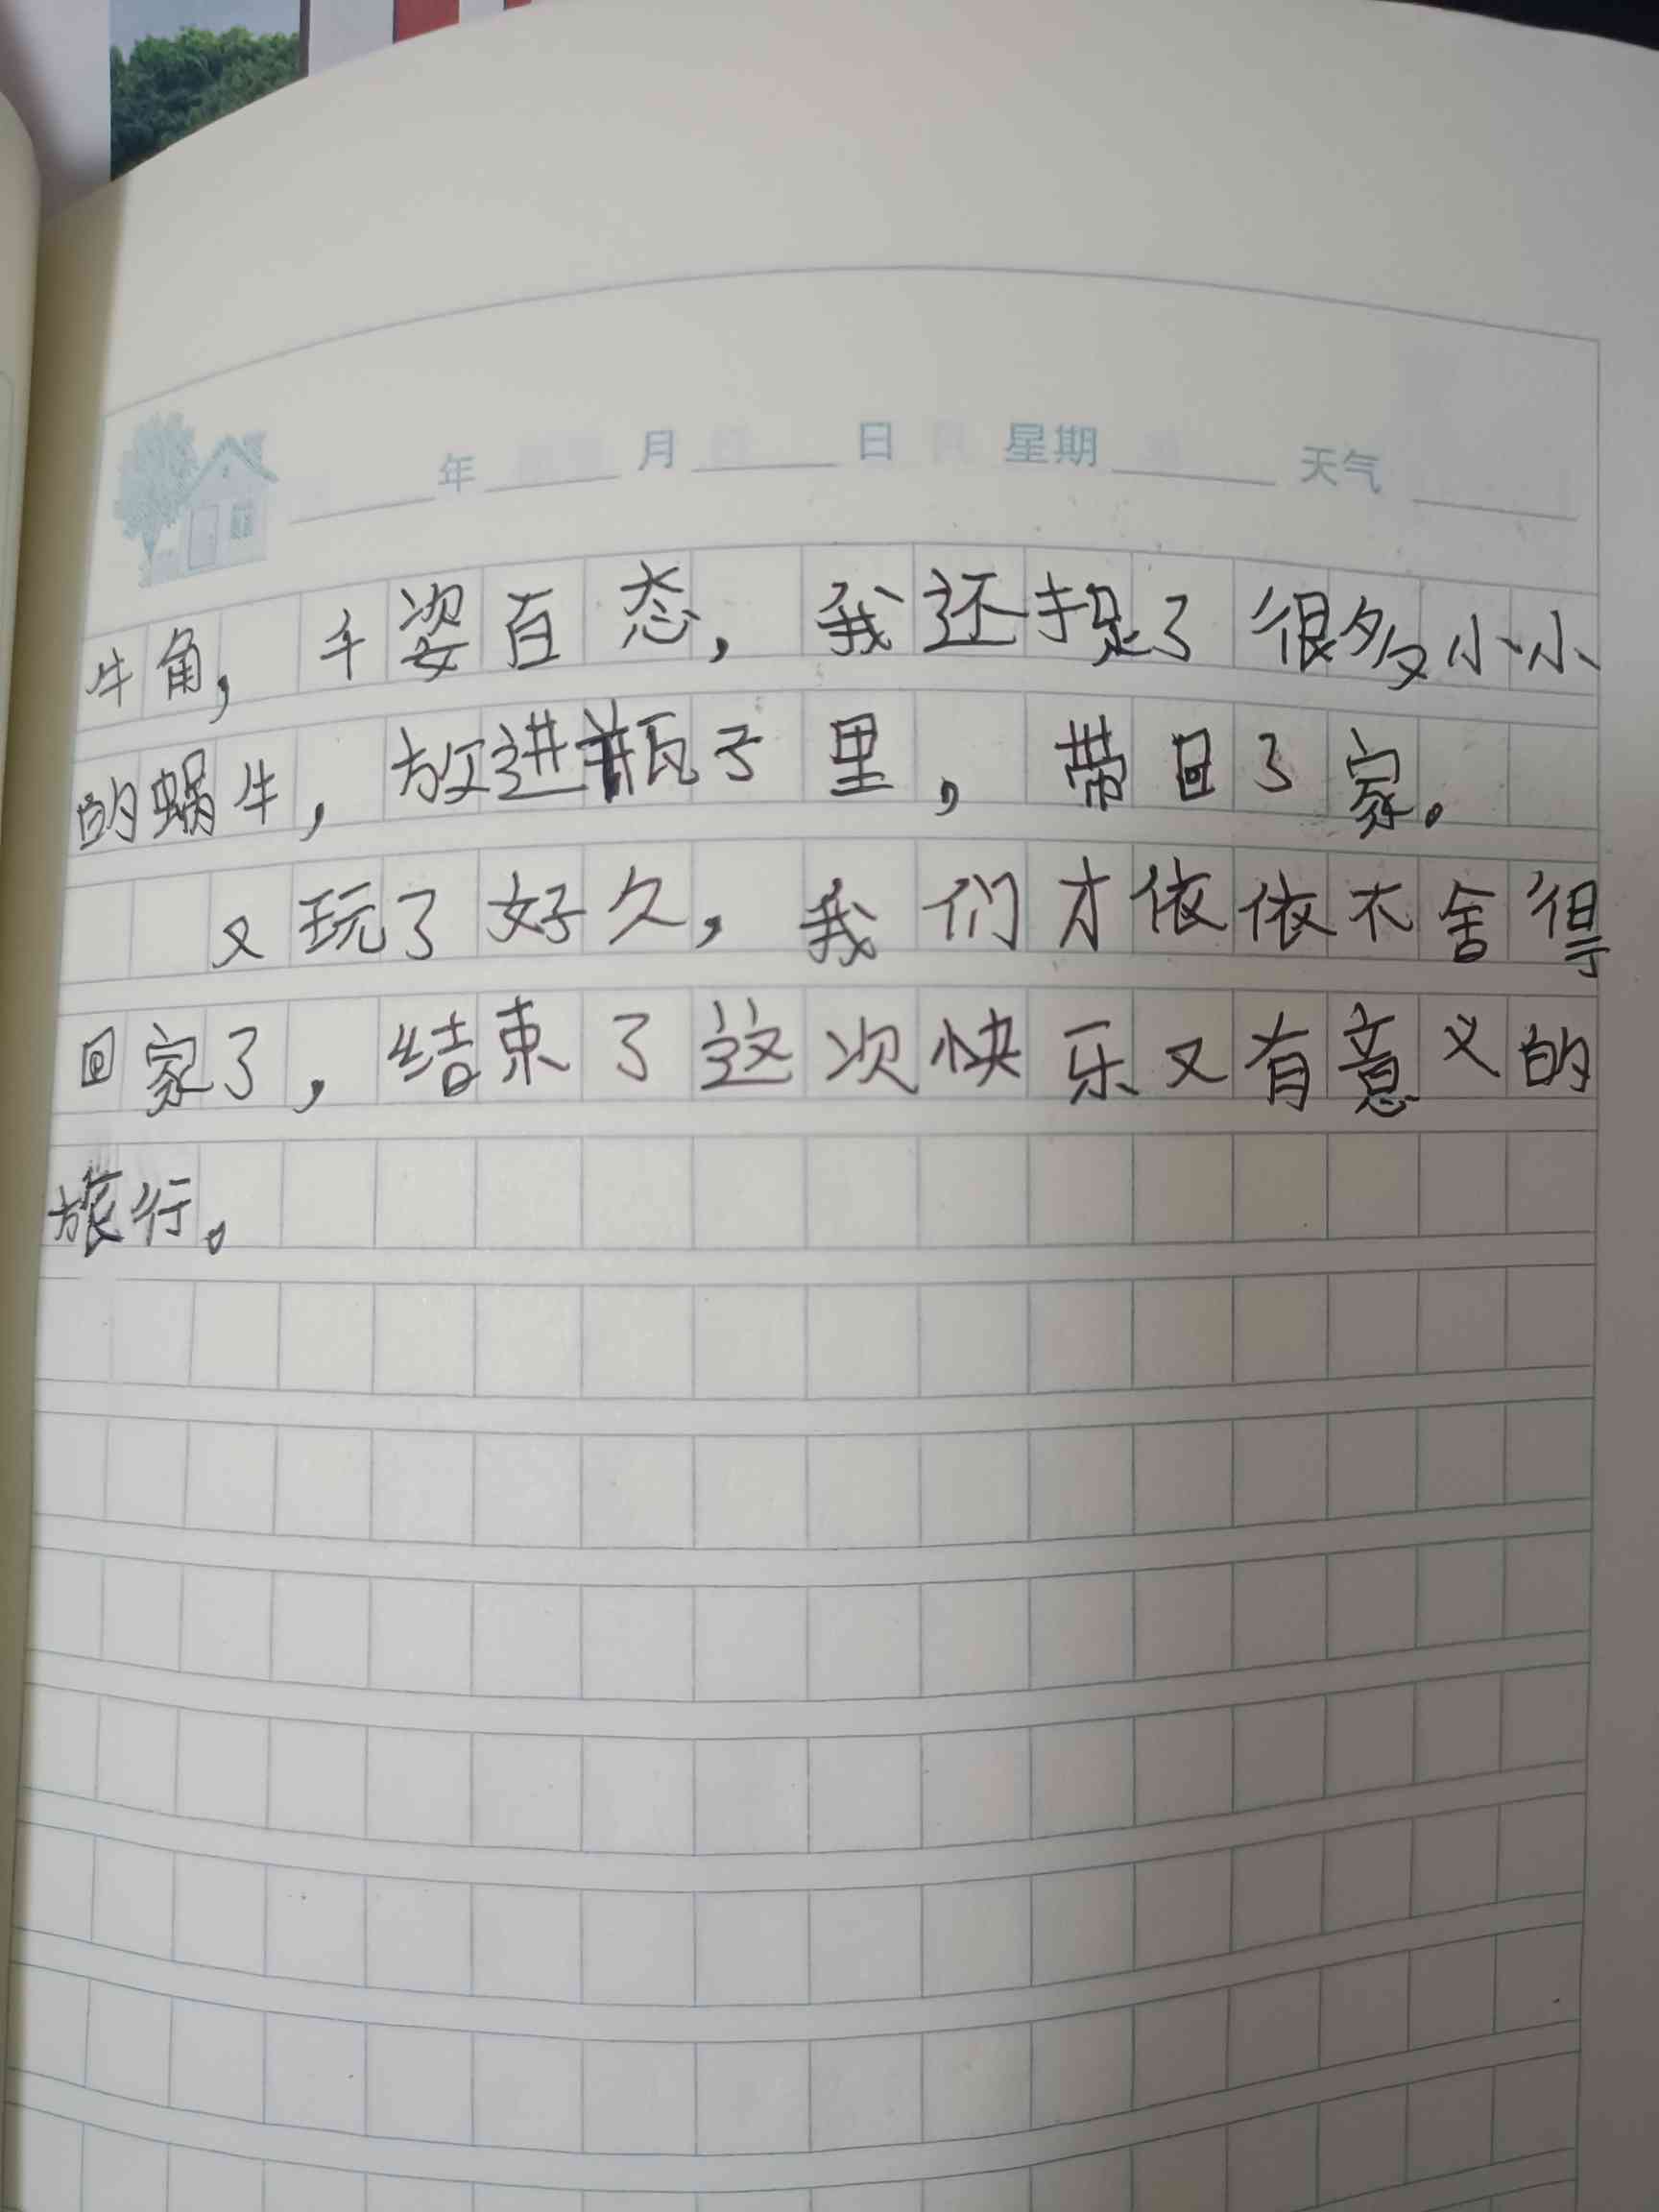 年 月 日 星期 天气
牛角，千姿百态，我还捉了很多小小
的蜗牛，放进瓶子里，带回了家。
又玩了好久，我们才依依不舍得
回家了，结束了这次快乐又有意义的
旅行。